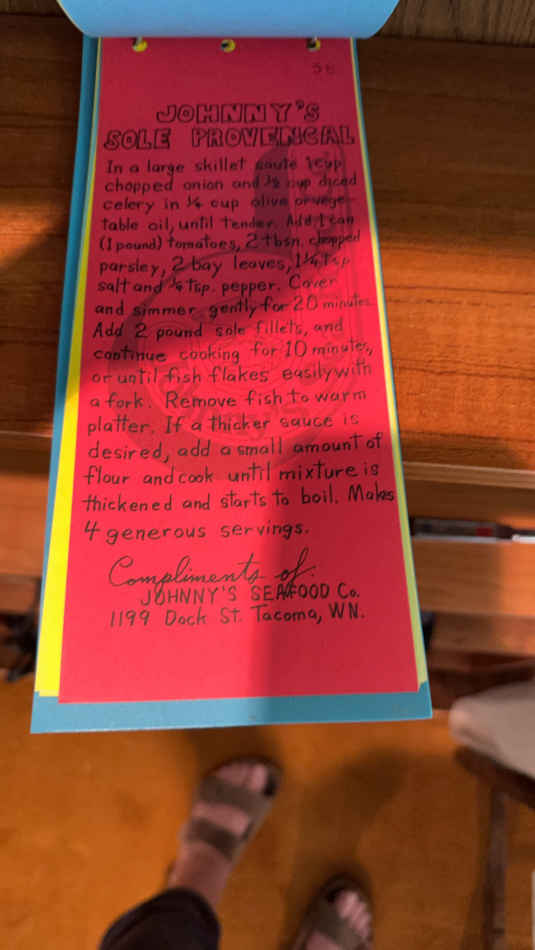 58
JOHNNY'S
SOLE PROVENCAL
In a large skillet saute 1 cup
chopped onion and ½ cup diced
celery in ¼ cup olive or vege-
table oil, until tender. Add 1 can
(1 pound) tomatoes, 2 tbsn. chopped
parsley, 2 bay leaves, 1¼ tsp
salt and ¼ tsp. pepper. Cover
and simmer gently for 20 minutes.
Add 2 pound sole fillets, and
continue cooking for 10 minutes,
or until fish flakes easily with
a fork. Remove fish to warm
platter. If a thicker sauce is
desired, add a small amount of
flour and cook until mixture is
thickened and starts to boil. Makes
4 generous servings.
Compliments of:
JOHNNY'S SEAFOOD Co.
1199 Dock St. Tacoma, WN.